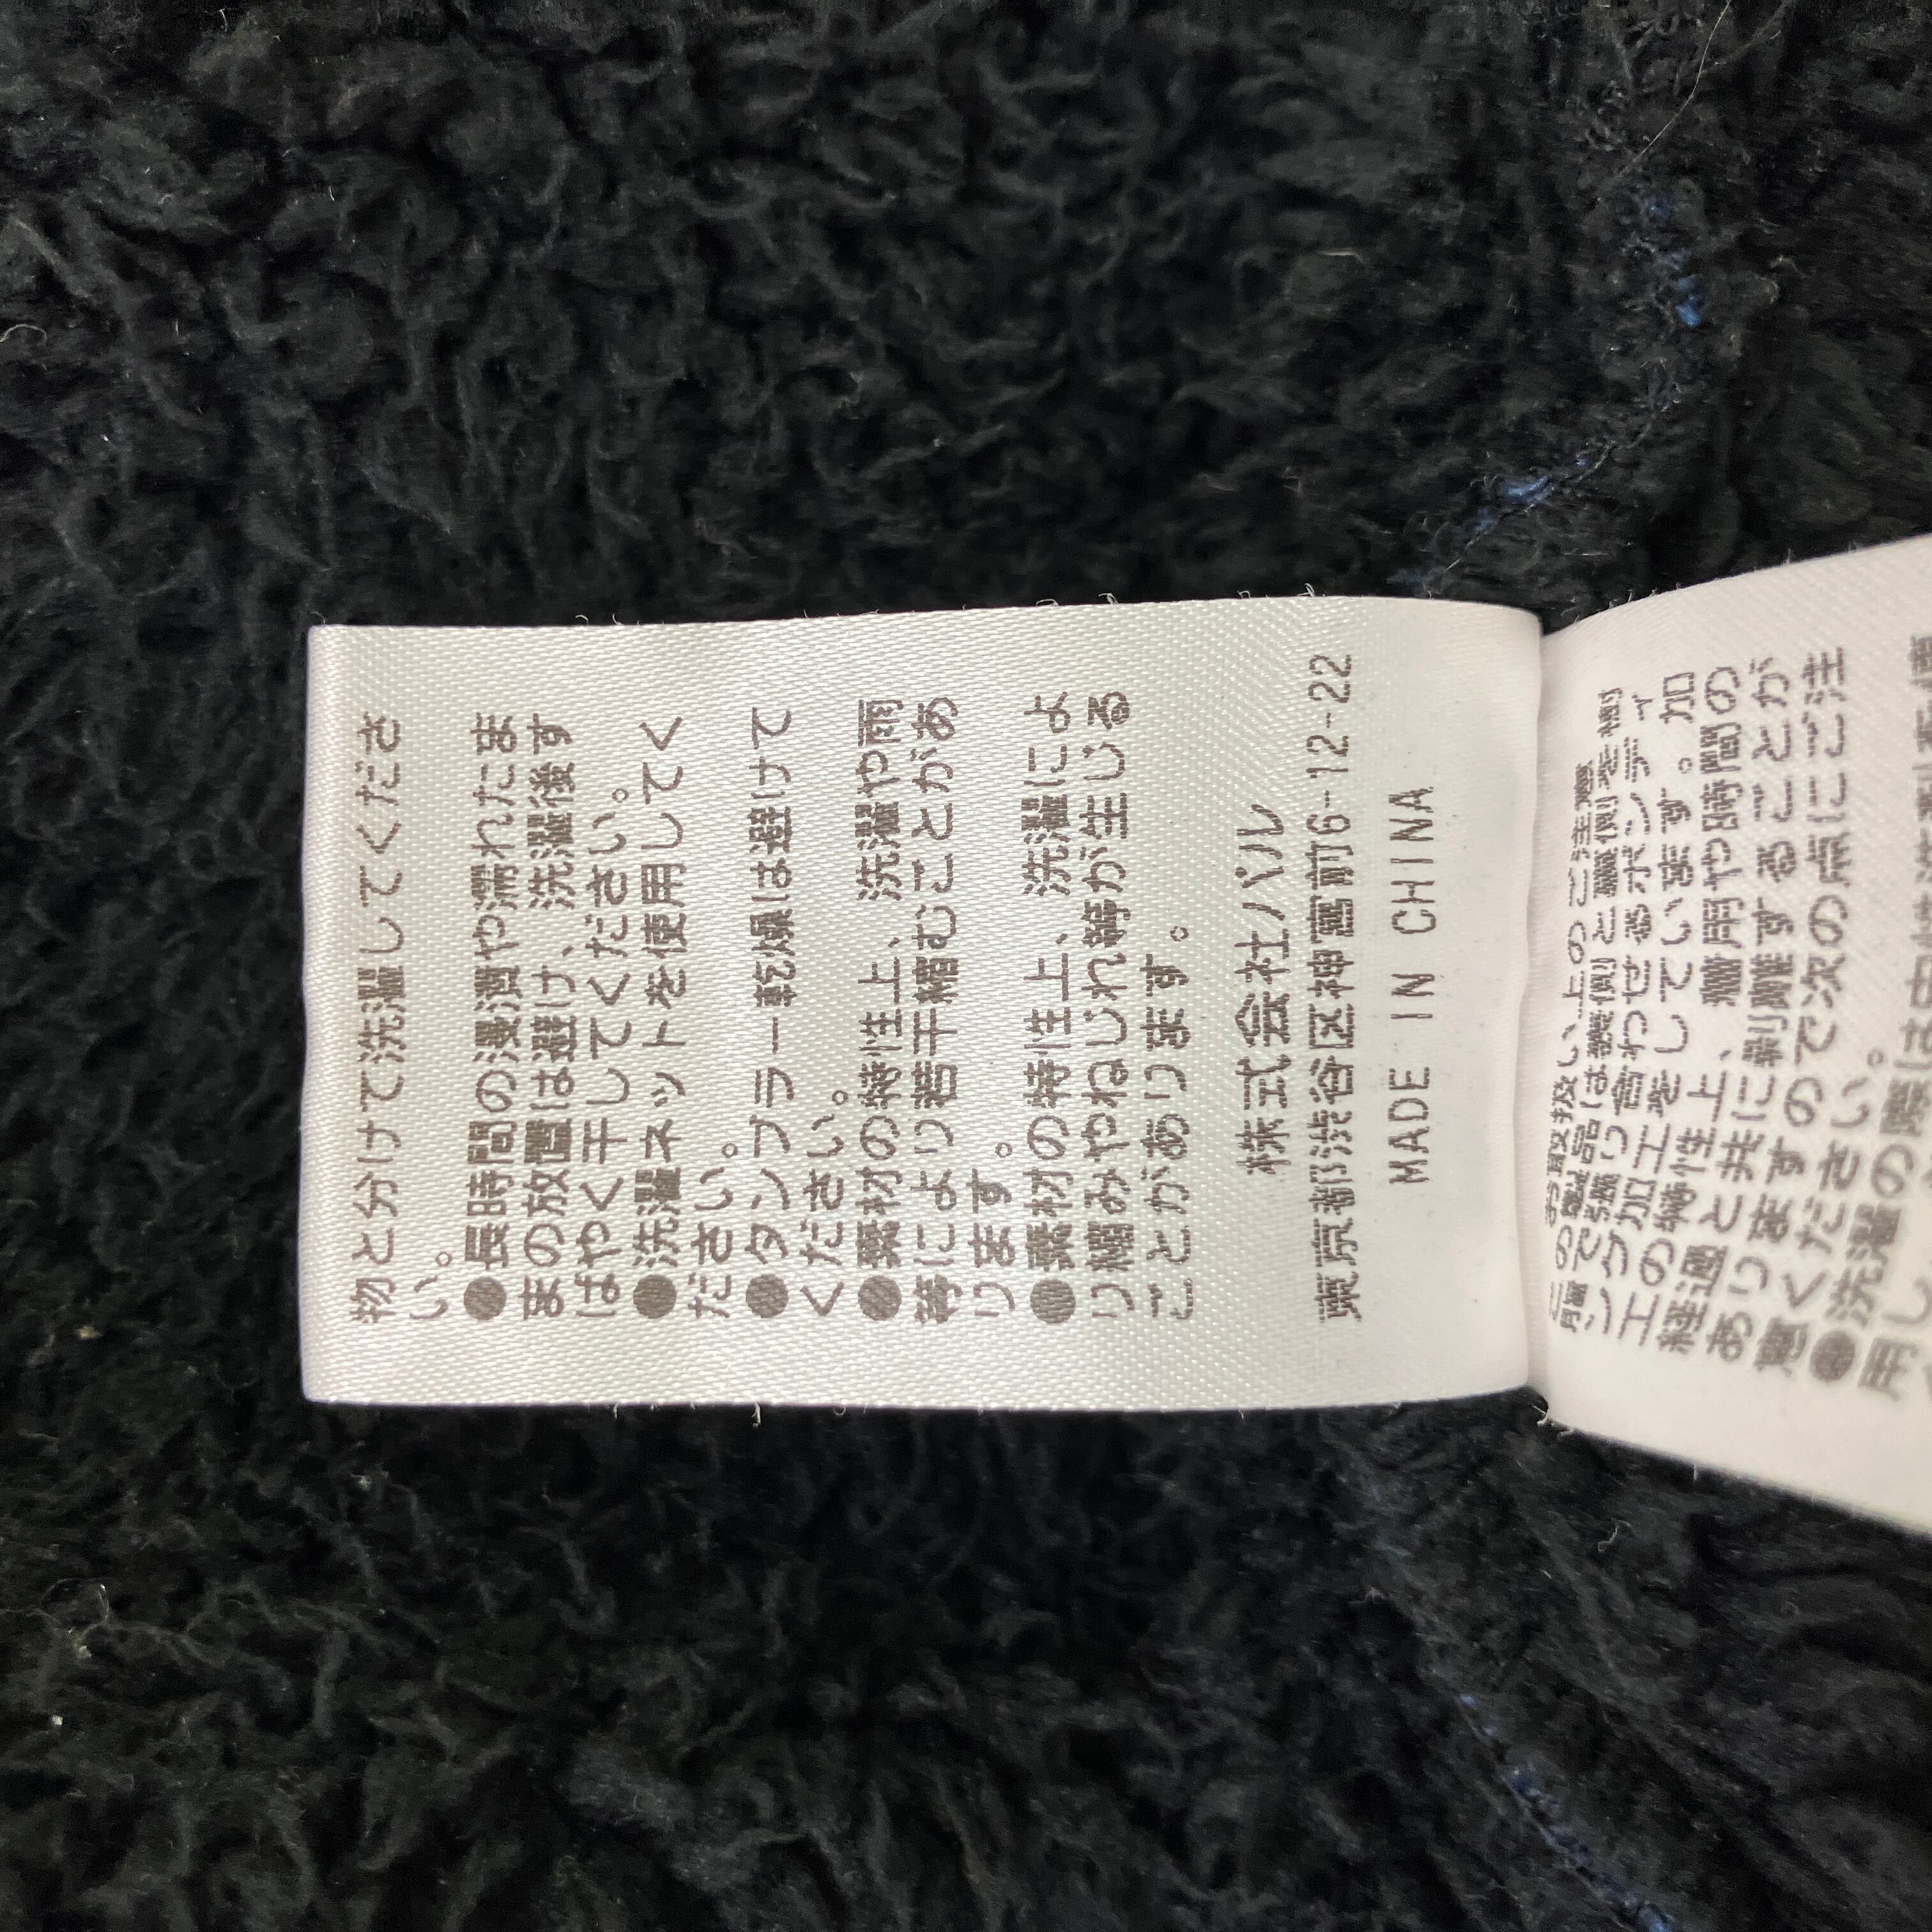 物と分けて洗濯してくださ
い。
●長時間の浸漬や濡れたま
まの放置は避け、洗濯後す
ばやく干してください。
●洗濯ネットを使用してく
ださい。
●タンブラー乾燥は避けて
ください。
●素材の特性上、洗濯や雨
等により若干縮むことがあ
ります。
●素材の特性上、洗濯によ
り縮みやねじれ等が生じる
ことがあります。
株式会社パル
東京都渋谷区神宮前6-12-22
MADE IN CHINA
お取扱い上のご注意
この製品は表側と裏側を樹
脂で張り合わせるボンディ
ング加工をしています。加
工の特性上、着用や時間の
経過と共に剥離することが
ありますので次の点にご注
意ください。
●洗濯の際は
用し